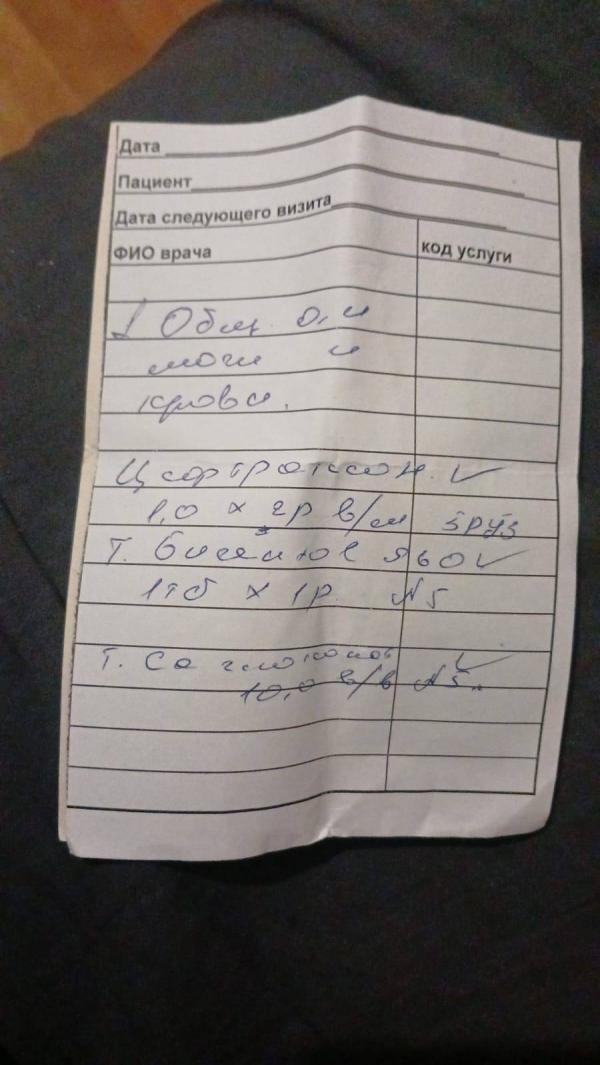 Дата
Пациент
Дата следующего визита
ФИО врача код услуги
1 Общ. а,и
мочи и
крови.
Цефтриаксон.
1,0 х 2р в/м
Т.
1тб х 1р. N5
Т. Са глюконат
10,0 в/в N5